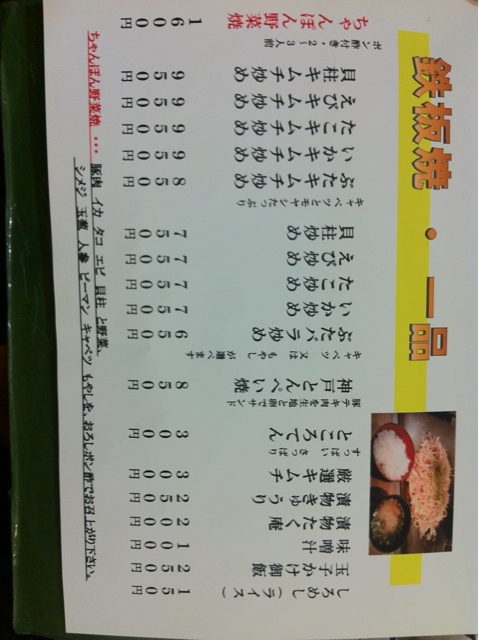 鉄板焼・一品
ちゃんぽん野菜焼 1600円
ポン酢付き・2~3人前
貝柱キムチ炒め 950円
えびキムチ炒め 950円
たこキムチ炒め 950円
いかキムチ炒め 950円
ぶたキムチ炒め 850円
キャベツとモヤシたっぷり
貝柱炒め 750円
えび炒め 750円
たこ炒め 750円
いか炒め 750円
ぶたバラ炒め 650円
キャベツ 又は もやし が選べます
神戸とんぺい焼 850円
豚テキ肉を生地と卵でサンド
ところてん 300円
すっぱい さっぱり
厳選キムチ 300円
漬物きゅうり 250円
漬物たく庵 200円
味噌汁 100円
玉子かけ御飯 250円
しろめし(ライス) 150円
ちゃんぽん野菜焼 ・・・ 豚肉 イカ タコ エビ 貝柱 と野菜、
シメジ 玉葱 人参 ピーマン キャベツ もやしを、おろしポン酢でお召上がり下さい。